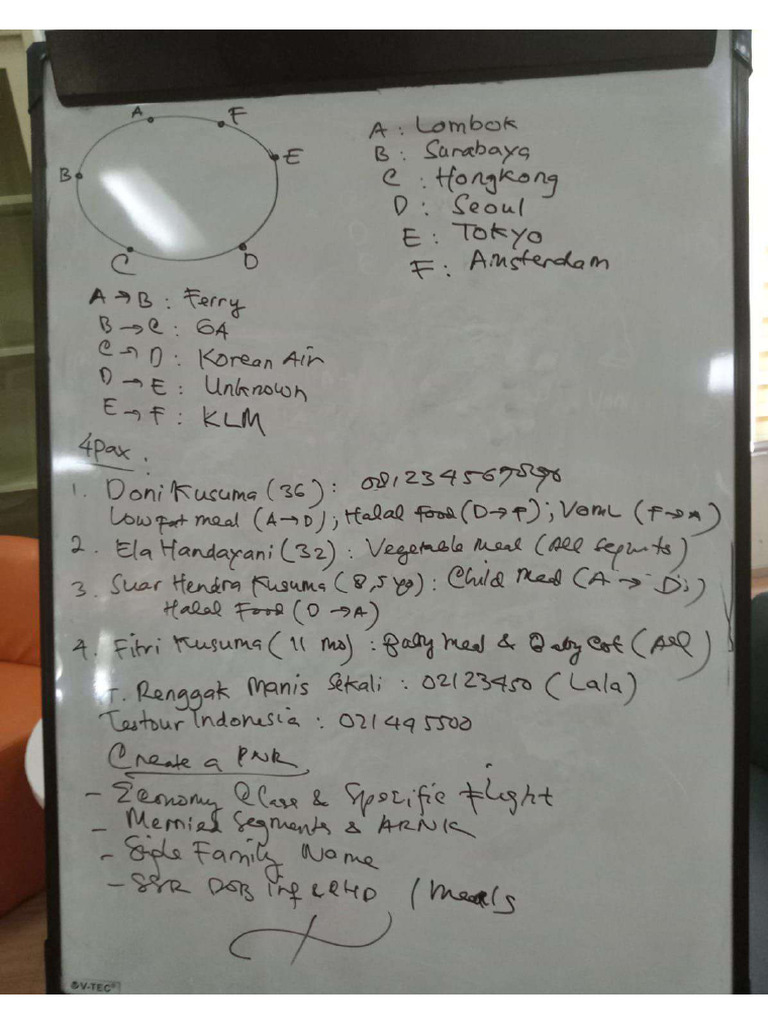 A F
B E
C D
A : Lombok
B : Surabaya
C : Hongkong
D : Seoul
E : Tokyo
F : Amsterdam
A → B : Ferry
B → C : GA
C → D : Korean Air
D → E : Unknown
E → F : KLM
4 pax :
1. Doni Kusuma (36) :
Low fat meal (A → D) ; Halal Food (D → F) ; VOML (F → A)
2. Ela Handayani (32) : Vegetable Meal (All Segments)
3. Suar Hendra Kusuma (8,5 yo) : Child Meal (A → D) ;
Halal Food (D → A)
4. Fitri Kusuma (11 mo) : Baby Meal & Baby Cot (All)
T. Renggak Manis Sekali : 02123450 (Lala)
Testour Indonesia : 021495500
Create a PNR
- Economy Class & Spesific Flight
- Merried Segments & ARNK
- Single Family Name
- SSR DOB Inf & CHD / Meals
V-TEC